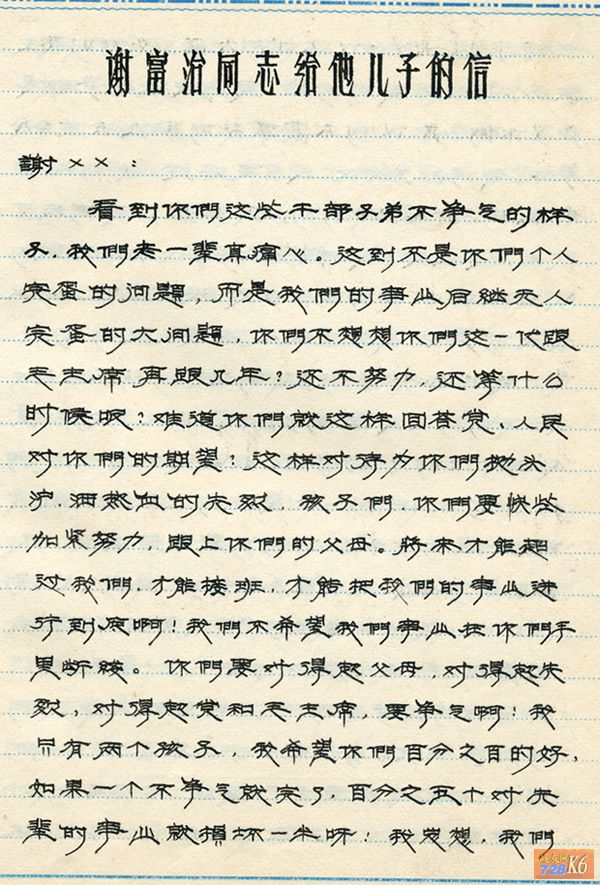 谢富治同志给他儿子的信
謝××:
看到你們这些干部子弟不争气的样
子,我們老一辈真痛心。这到不是你們个人
完蛋的问題,而是我們的事业后继无人
完蛋的大问題,你們不想想你們这一代跟
毛主席再跟几年?还不努力,还等什么
时候呢?难道你們就这样回答党、人民
对你們的期望?这样对待为你們抛头
沪,洒热血的先烈,孩子們,你們要快些
加紧努力,跟上你們的父母。將来才能超
过我們,才能接班,才能把我們的事业进
行到底啊!我們不希望我們事业在你們手
里断线。你們要对得起父母,对得起先
烈,对得起党和毛主席,要争气啊!我
只有两个孩子,我希望你們百分之百的好,
如果一个不争气就完了,百分之五十对先
辈的事业就損坏一半呀!我思想,我們
728 K6